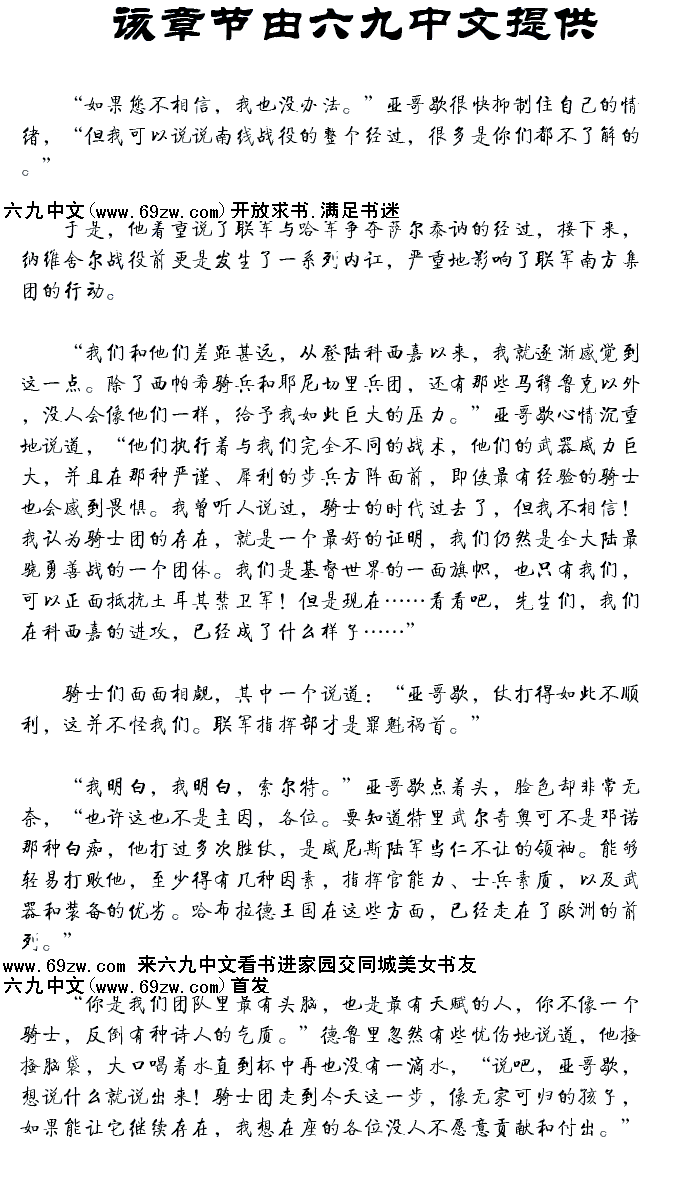 该章节由六九中文提供
“如果您不相信，我也没办法。”亚哥歇很快抑制住自己的情
绪，“但我可以说说南线战役的整个经过，很多是你们都不了解的
。”
六九中文(www.69zw.com)开放求书.满足书迷
于是，他着重说了联军与哈军争夺萨尔泰讷的经过，接下来，
纳维舍尔战役前更是发生了一系列内讧，严重地影响了联军南方集
团的行动。
“我们和他们差距甚远，从登陆科西嘉以来，我就逐渐感觉到
这一点。除了西帕希骑兵和耶尼切里兵团，还有那些马穆鲁克以外
，没人会像他们一样，给予我如此巨大的压力。”亚哥歇心情沉重
地说道，“他们执行着与我们完全不同的战术，他们的武器威力巨
大，并且在那种严谨、犀利的步兵方阵面前，即使最有经验的骑士
也会感到畏惧。我曾听人说过，骑士的时代过去了，但我不相信！
我认为骑士团的存在，就是一个最好的证明，我们仍然是全大陆最
骁勇善战的一个团体。我们是基督世界的一面旗帜，也只有我们，
可以正面抵抗土耳其禁卫军！但是现在……看看吧，先生们，我们
在科西嘉的进攻，已经成了什么样子……”
骑士们面面相觑，其中一个说道：“亚哥歇，仗打得如此不顺
利，这并不怪我们。联军指挥部才是罪魁祸首。”
“我明白，我明白，索尔特。”亚哥歇点着头，脸色却非常无
奈，“也许这也不是主因，各位。要知道特里武尔奇奥可不是邓诺
那种白痴，他打过多次胜仗，是威尼斯陆军当仁不让的领袖。能够
轻易打败他，至少得有几种因素，指挥官能力、士兵素质，以及武
器和装备的优劣。哈布拉德王国在这些方面，已经走在了欧洲的前
列。”
www.69zw.com 来六九中文看书进家园交同城美女书友
六九中文(www.69zw.com)首发
“你是我们团队里最有头脑，也是最有天赋的人，你不像一个
骑士，反倒有种诗人的气质。”德鲁里忽然有些忧伤地说道，他搔
搔脑袋，大口喝着水直到杯中再也没有一滴水，“说吧，亚哥歇，
想说什么就说出来！骑士团走到今天这一步，像无家可归的孩子，
如果能让它继续存在，我想在座的各位没人不愿意贡献和付出。”